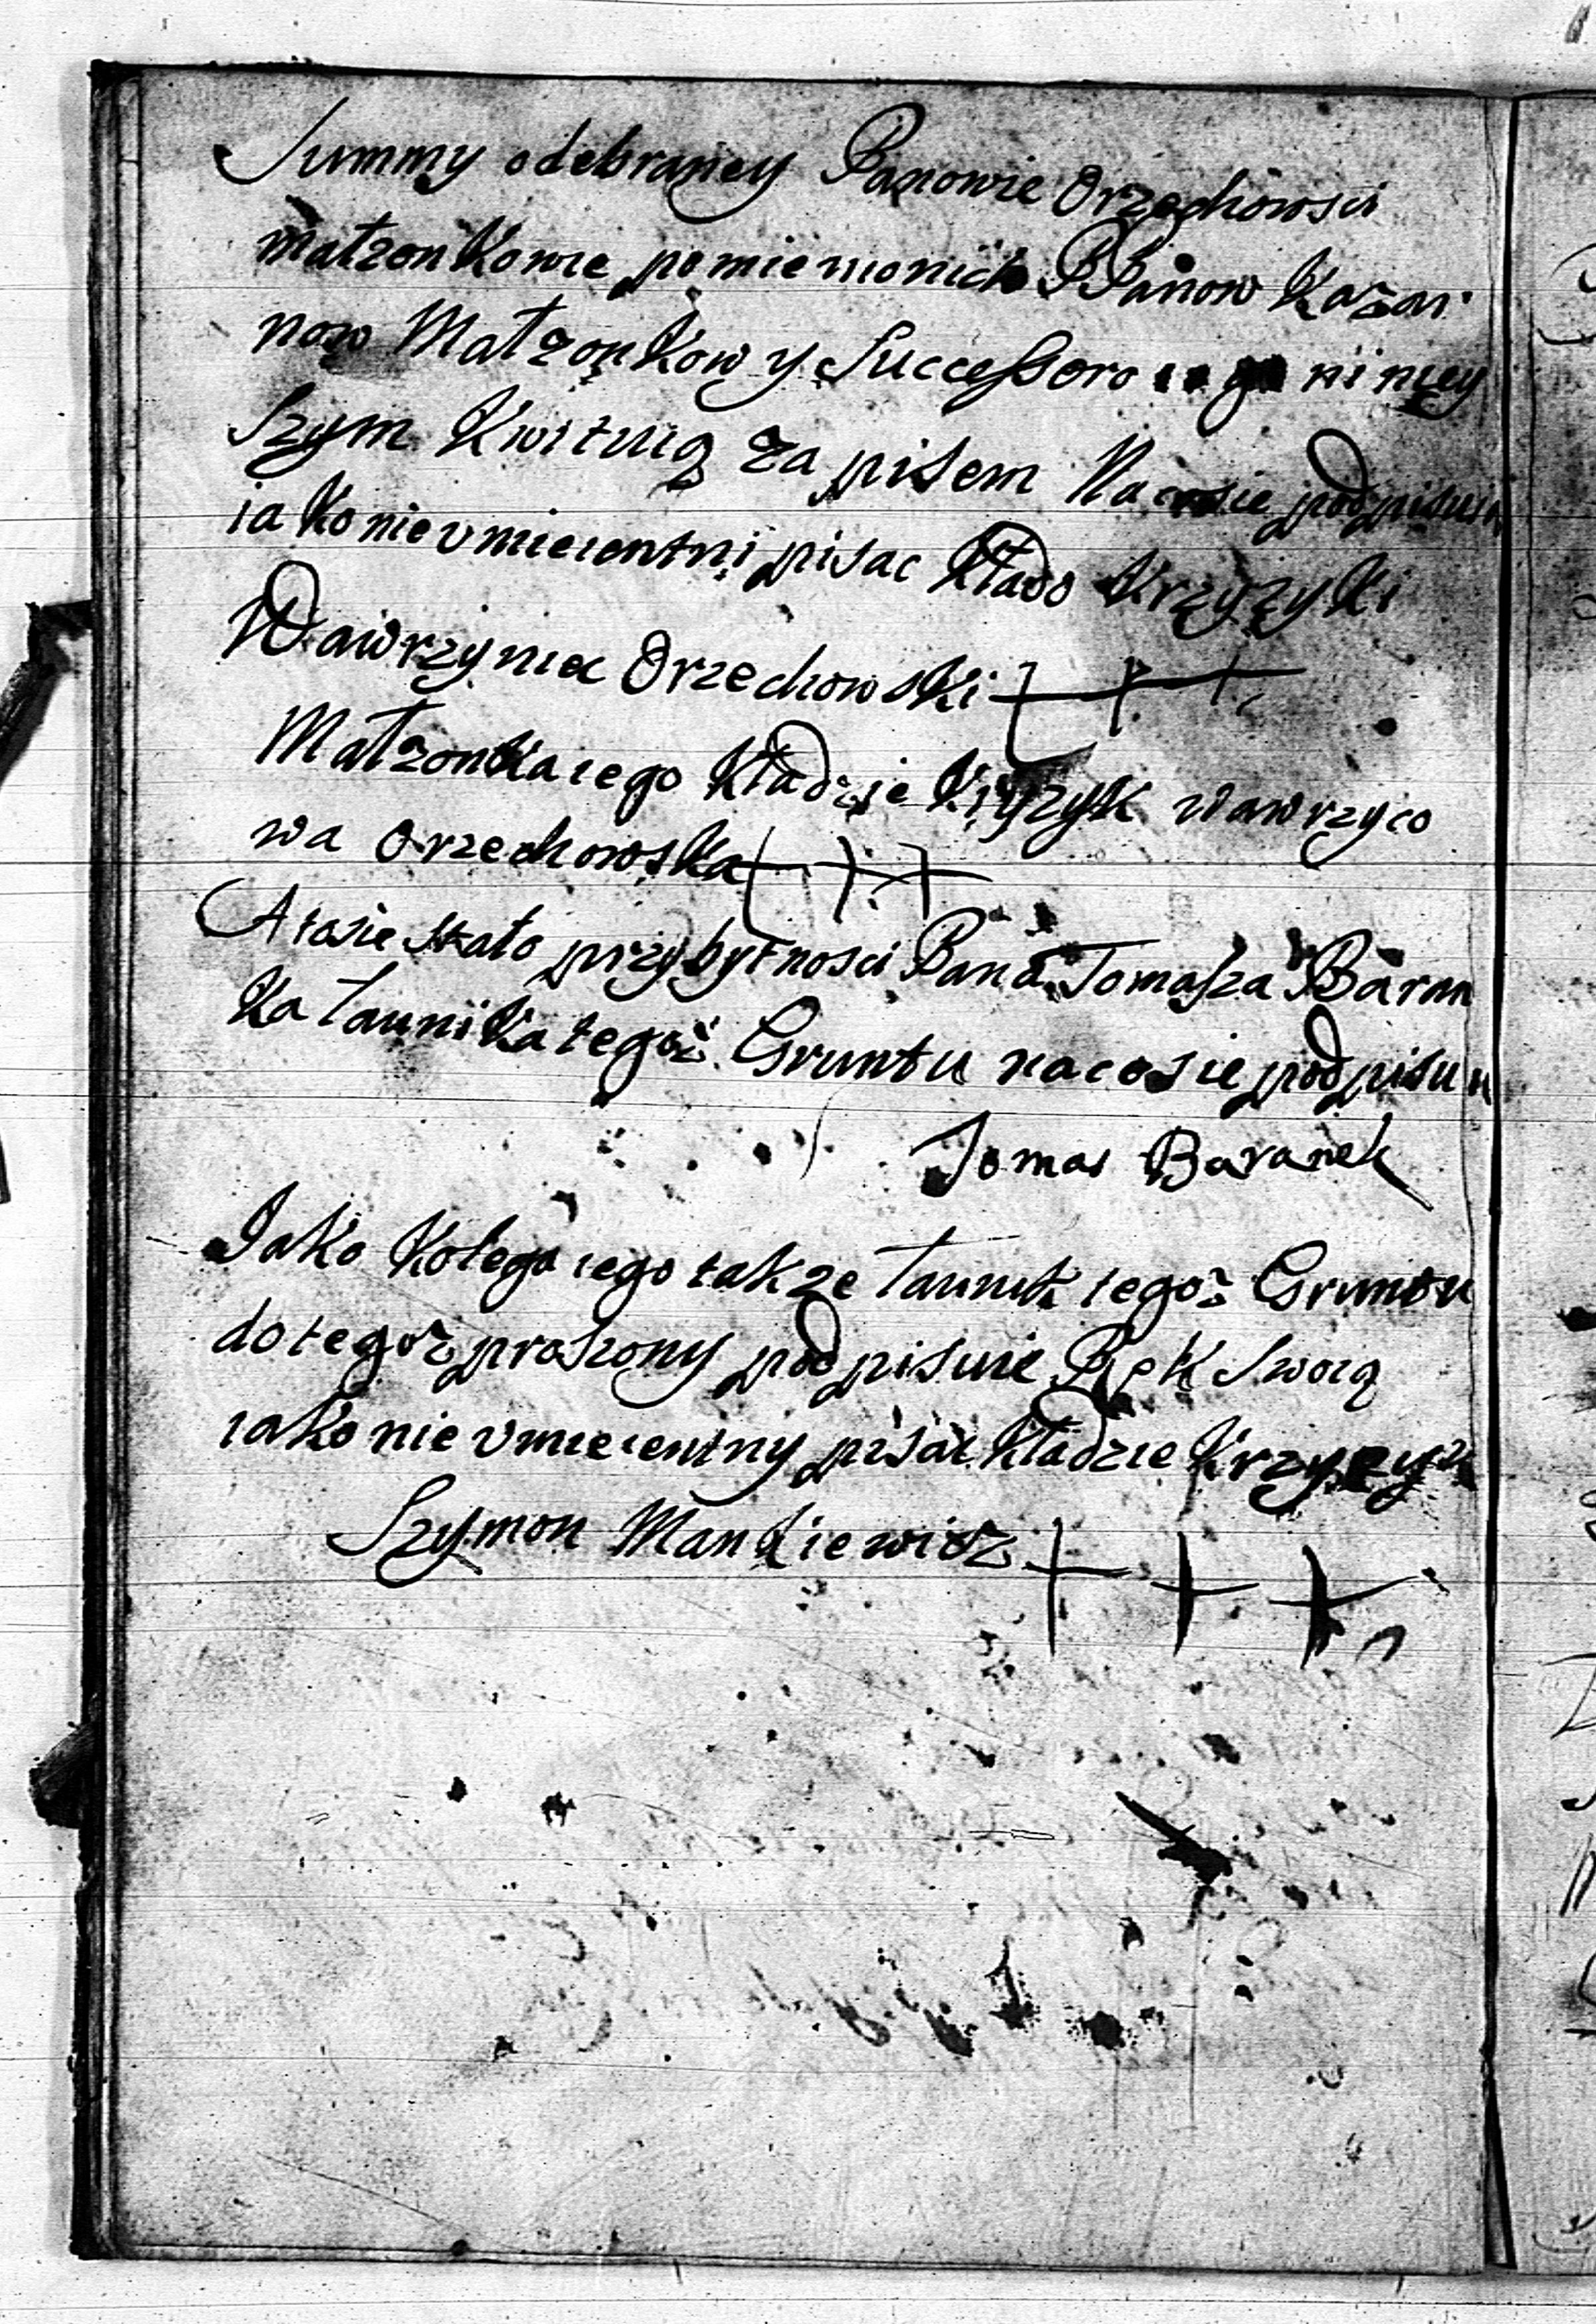 Summy odebraney Panowie Orzechowsci
małzonkowie pomienionich PPanow Kazan
now Małzonkow y Successorow niniey
szym Kwituią zapisem Nacosie podpisuią
iako nieumieientni pisac kłado krzyzyki
Wawrzyniec Orzechowski +++
Małzonka iego kładzie krzyzyk wawrzyco
wa Orzechowska +++
A tosie stało przy bytnosci Pana Tomasza Baran
ka Ławnika tegoż Gruntu nacosie podpisuie
Tomas Baranek
Jako Kolega iego takze Ławnik tegoż Gruntu
do tegoż proszony podpisuie Ręk Swoią
iako nieumieientny pisac kładzie krzyzyk
Szymon Mankiewicz +++